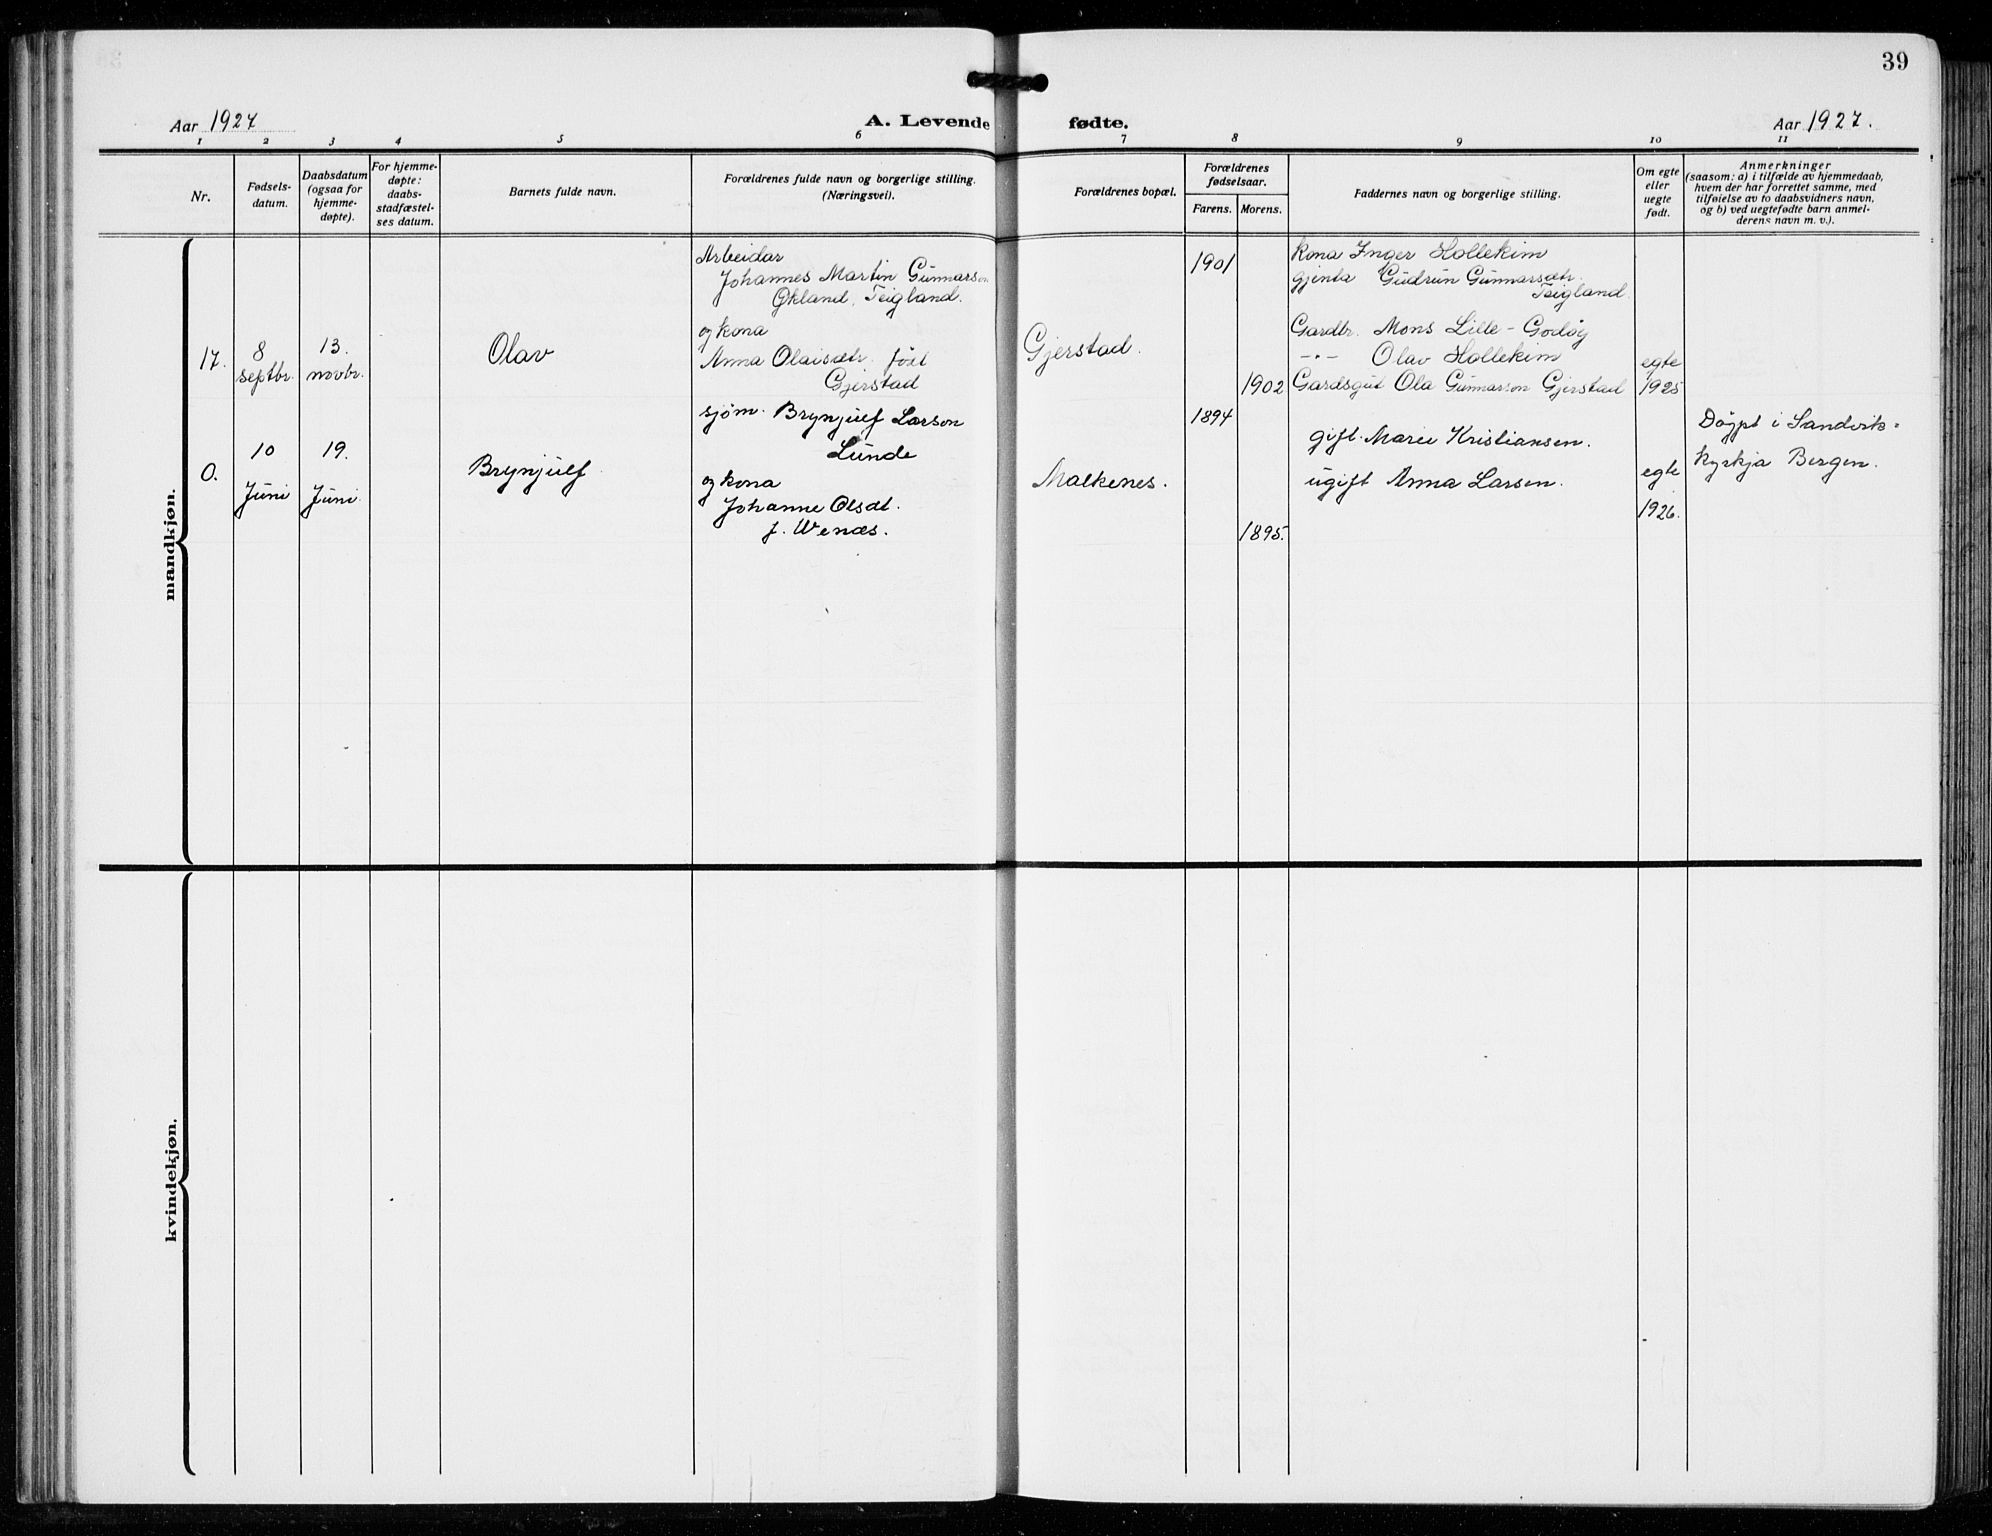 39
Aar 1927
A. Levende fødte.
Aar 1927.
1 2 3 4 5 6 7 8 9 10 11
Nr.
Fødsels-
datum.
Daabsdatum
(ogsaa for
hjemme-
døpte).
For hjemme-
døpte:
daabs-
stadfæstel-
ses datum.
Barnets fulde navn.
Forældrenes fulde navn og borgerlige stilling.
(Næringsvei).
Forældrenes bopæl.
Forældrenes
fødselsaar.
Farens. Morens.
Faddernes navn og borgerlige stilling.
Om egte
eller
uegte
født.
Anmerkninger
(saasom: a) i tilfælde av hjemmedaab,
hvem der har forrettet samme, med
tilføielse av to daabsvidners navn,
og b) ved uegtefødte barn anmel-
derens navn m. v.).
mandkjøn.
17.
8
septbr.
13.
novbr.
Olav
Arbeidar
Johannes Martin Gunnarson
Økland, Teigland.
og kona
Anna Olaisdtr. født
Gjerstad
Gjerstad.
1901
1902
Kona Inger Hollekim
gjenta Gudrun Gunnarsdtr.
Teigland.
Gardbr. Mons Lille-Godøy
-"- Olav Hollekim
Gardsgut Ola Gunnarson Gjerstad
egte
1925
0.
10
Juni
19.
Juni
Brynjulf
sjøm. Brynjulf Larson
Lunde
og kona
Johanne Olsdt.
f. Wenæs.
Malkenes.
1894
1895.
gift. Marie Kristiansen.
ugift Anna Larsen.
egte
1926.
Døypt i Sandvik-
kyrkja Bergen.
kvindekjøn.